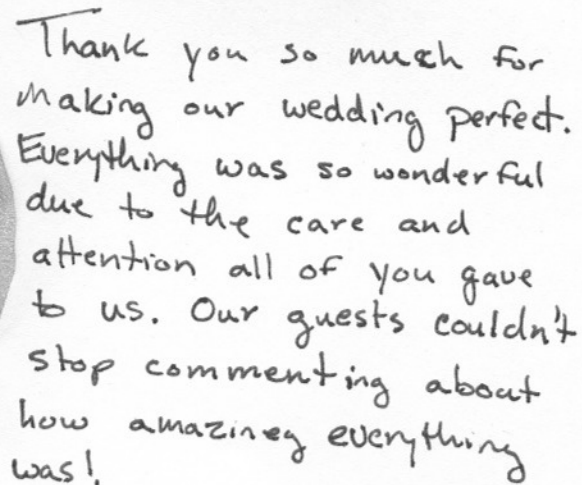 Thank you so much for
making our wedding perfect.
Everything was so wonderful
due to the care and
attention all of you gave
to us. Our guests couldn't
stop commenting about
how amazineg everything
was!